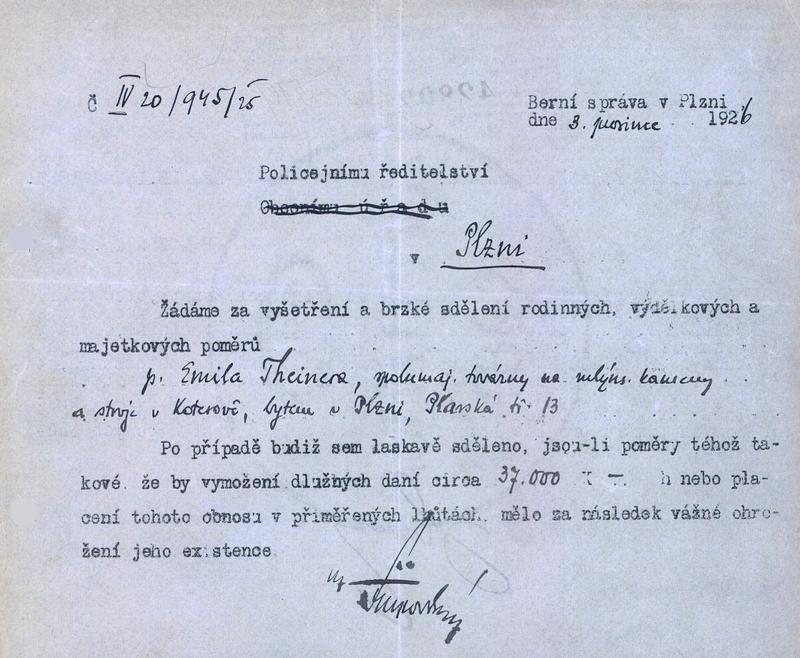 č IV 20/945/25
Berní správa v Plzni
dne 3. prosince 1926
Policejnímu ředitelství
Obecnímu úřadu
v Plzni
Žádáme za vyšetření a brzké sdělení rodinných, výdělkových a
majetkových poměrů
p. Emila Theinera, spolumaj. továrny na mlýns. kameny
a stroje v Koterově, bytem v Plzni, Plaská tř. 13
Po případě budiž sem laskavě sděleno, jsou-li poměry téhož ta-
kové že by vymožení dlužných daní circa 37.000 K — h nebo pla-
cení tohoto obnosu v přiměřených lhůtách mělo za následek vážné ohro-
žení jeho existence